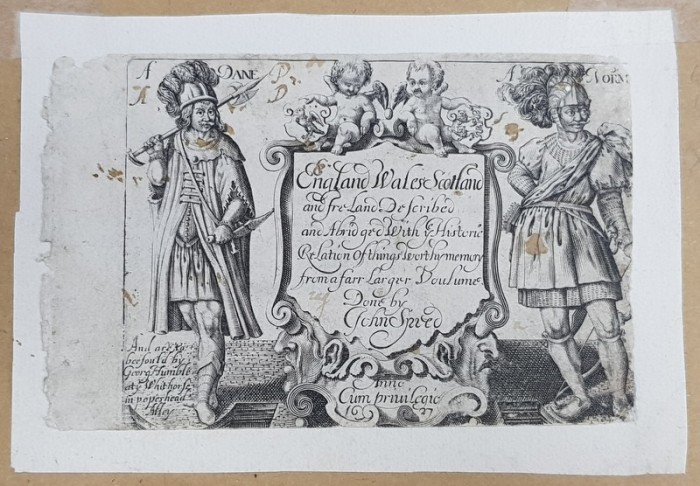 A DANE
A NORM
England Wales Scotland
and Ireland Described
and Abridged With ye Historic
Relation Of things worthy memory
from a farr Larger Voulume.
Done by
John Speed
Anno
Cum privilegio
1627
And are to
bee sould by
Georg Humble
at ye Whithorse
in popeshead
Alley